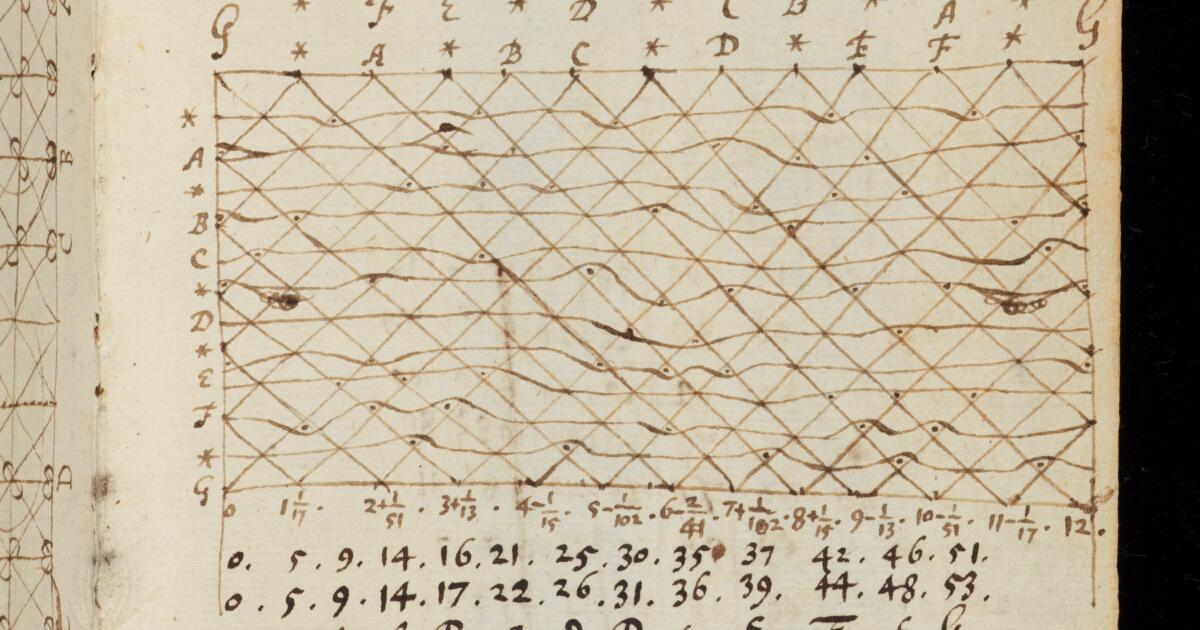 G * F E * D * C B * A * G
* A * B C * D * E F *
*
A
*
B
C
*
D
*
E
F
*
G
0 1 1/17 . 2+1/51 3+1/13 . 4-1/15 . 5-1/102 . 6-2/41 7+1/102 . 8+1/15 9-1/13 . 10-1/51 11-1/17 . 12.
0. 5. 9. 14. 16. 21. 25. 30. 35 37 42. 46. 51.
0. 5. 9. 14. 17. 22. 26. 31. 36. 39. 44. 48. 53.
B
C
D